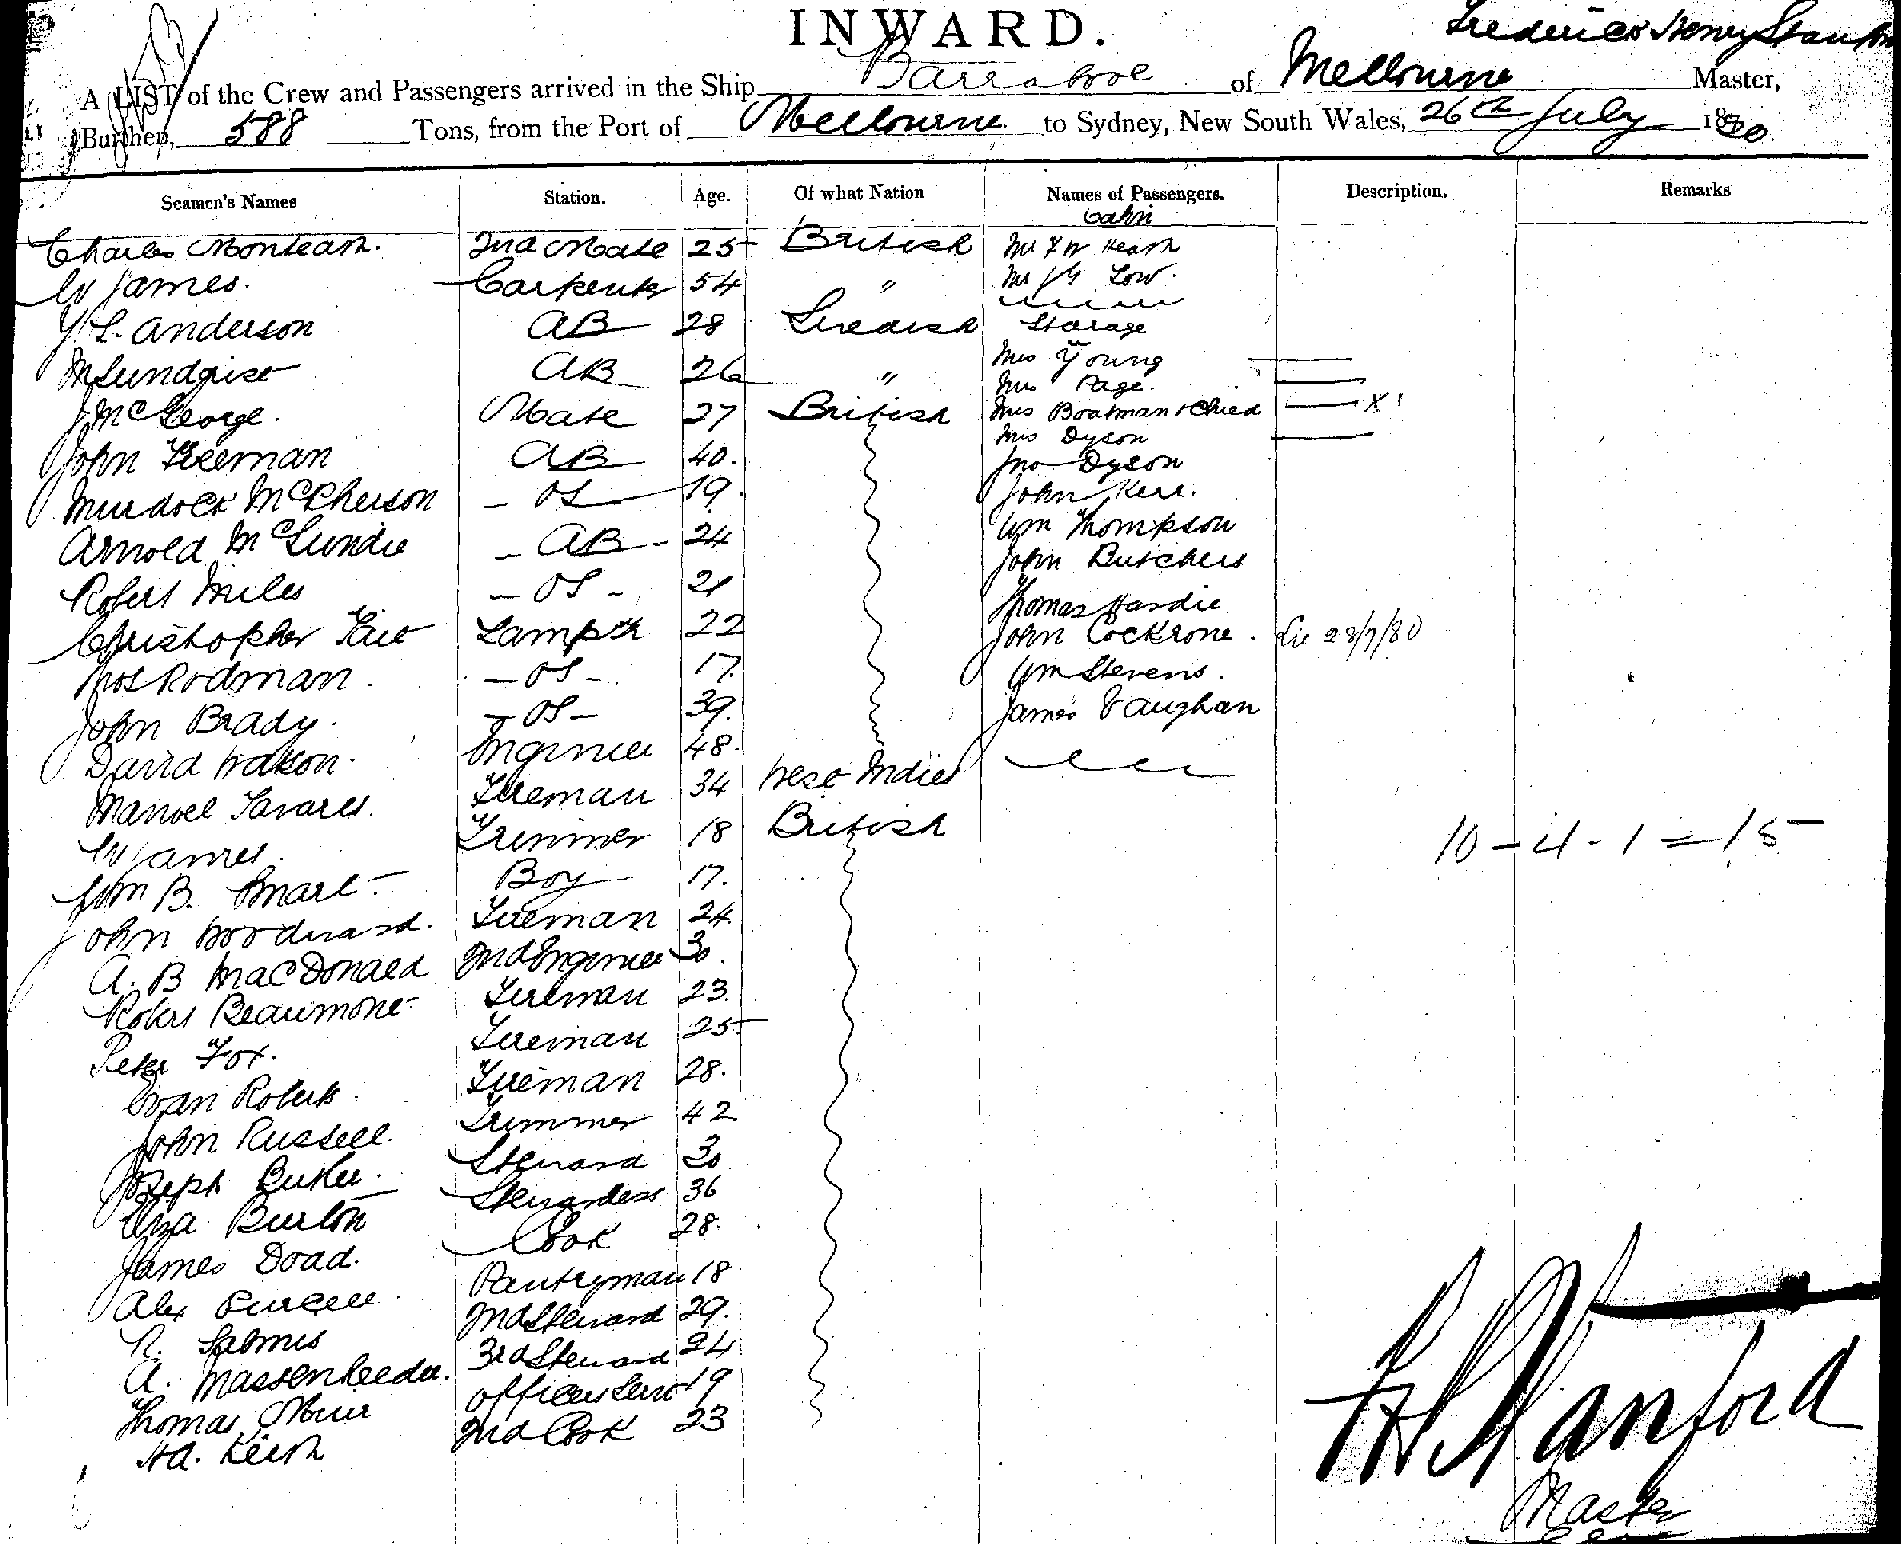 INWARD.
Frederick Henry
A LIST of the Crew and Passengers arrived in the Ship Barrabool of Melbourne Master,
Burthen, 588 Tons, from the Port of Melbourne to Sydney, New South Wales, 26th July 1880
Seamen's Names Station. Age. Of what Nation Names of Passengers. Description. Remarks
Cabin
Charles Monteath. 2nd Mate 25 British Mr F W Heath
W James. Carpenter 54 " Mr Low.
L. Anderson AB 28 Swedish Starage
M Lundquist AB 26 " Mrs Young
Mrs Page.
J McGeorge. Mate 27 British Mrs Boatman & Child X
Mrs Dyson
John Freeman AB 40. Jno Dyson
Murdock McPherson OS 19. John Kerr.
Wm Thompson
Arnold McLundie AB 24 John Butchers
Robert Miles OS 21 Thomas Hardie
Christopher Lampt 22 John Cockrone. 28/7/80
Thos Rodman. OS 17. Wm Stevens.
John Brady. OS 39. James Vaughan
David Watson. Engineer 48.
Manoel Tavares. Fireman 34 West Indies
W James. Trimmer 18 British
10 - 4 - 1 = 15
B. Smart Boy 17.
John Woodward. Fireman 24.
A. B MacDonald 2nd Engineer 30.
Robert Beaumont Fireman 23.
Peter Fox. Fireman 25
Evan Roberts. Fireman 28.
John Russell Trimmer 42
Joseph Steward 30
Eliza Burton Stewardess 36
James Doad. Cook 28.
Alex Purcell. Pantryman 18
2nd Steward 29.
A. 3rd Steward 24
Thomas Muir officers Servt 19
Hd. Keith 2nd Cook 23
F H Stanford
Master